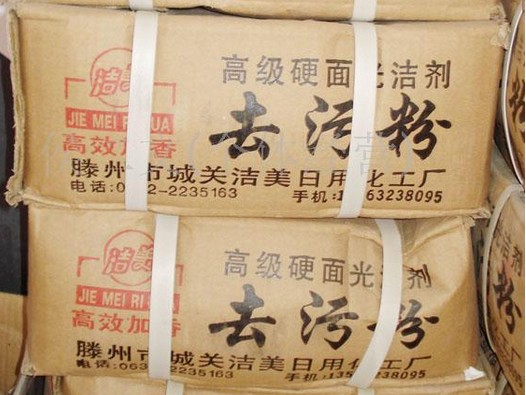 洁美
JIE MEI RI HUA
高效加香
高级硬面光洁剂
去污粉
滕州市城关洁美日用化工厂
电话:0632-2235163
手机:13563238095
洁美
JIE MEI RI HUA
高效加香
高级硬面光洁剂
去污粉
滕州市城关洁美日用化工厂
电话:0632-2235163